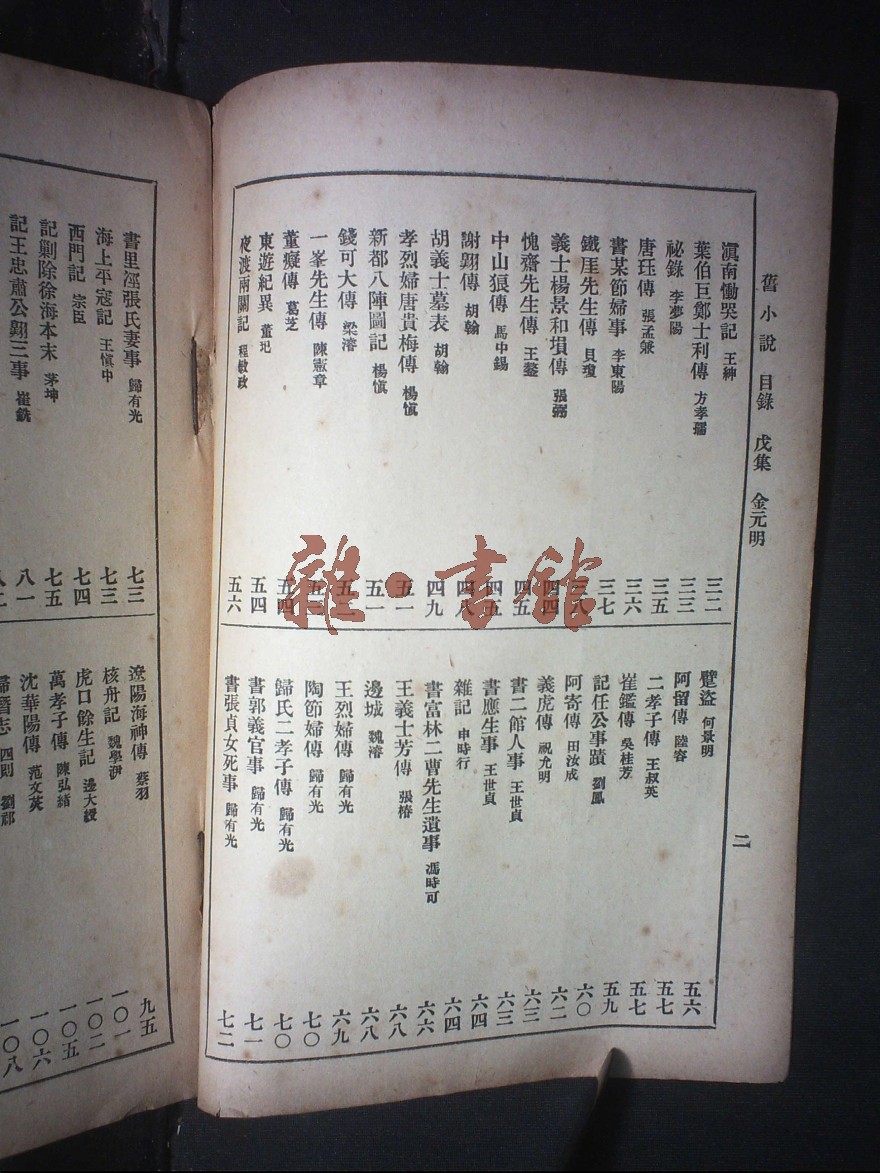 舊小說 目錄 戊集 金元明
二
滇南慟哭記 王紳 三二
葉伯巨鄭士利傳 方孝孺 三三
祕錄 李夢陽 三五
唐珏傳 張孟兼 三六
書某節婦事 李東陽 三七
鐵厓先生傳 貝瓊 三八
義士楊景和塤傳 張弼 四四
愧齋先生傳 王鏊 四五
中山狼傳 馬中錫 四五
謝翺傳 胡翰 四八
胡義士墓表 胡翰 四九
孝烈婦唐貴梅傳 楊愼 五一
新都八陣圖記 楊愼 五一
錢可大傳 梁濬
一峯先生傳 陳憲章
董癡傳 葛芝 五四
東遊紀異 董玘 五四
夜渡兩關記 程敏政 五六
躄盜 何景明 五六
阿留傳 陸容 五七
二孝子傳 王叔英 五七
崔鑑傳 吳桂芳 五九
記任公事蹟 劉鳳 六〇
阿寄傳 田汝成 六二
義虎傳 祝允明 六三
書二館人事 王世貞 六三
書應生事 王世貞 六四
雜記 申時行 六四
書富林二曹先生遺事 馮時可 六六
王義士芳傳 張椿 六八
邊城 魏濬 六八
王烈婦傳 歸有光 六九
陶節婦傳 歸有光 七〇
歸氏二孝子傳 歸有光 七〇
書郭義官事 歸有光 七一
書張貞女死事 歸有光 七二
書里涇張氏妻事 歸有光 七三
海上平寇記 王愼中 七三
西門記 宗臣 七四
記剿除徐海本末 茅坤 七五
記王忠肅公翺三事 崔銑 八一
遼陽海神傳 蔡羽 九五
核舟記 魏學洢 一〇一
虎口餘生記 邊大綬 一〇二
萬孝子傳 陳弘緒 一〇五
沈華陽傳 范文英 一〇六
歸潛志 四則 劉祁 一〇八
雜·書館